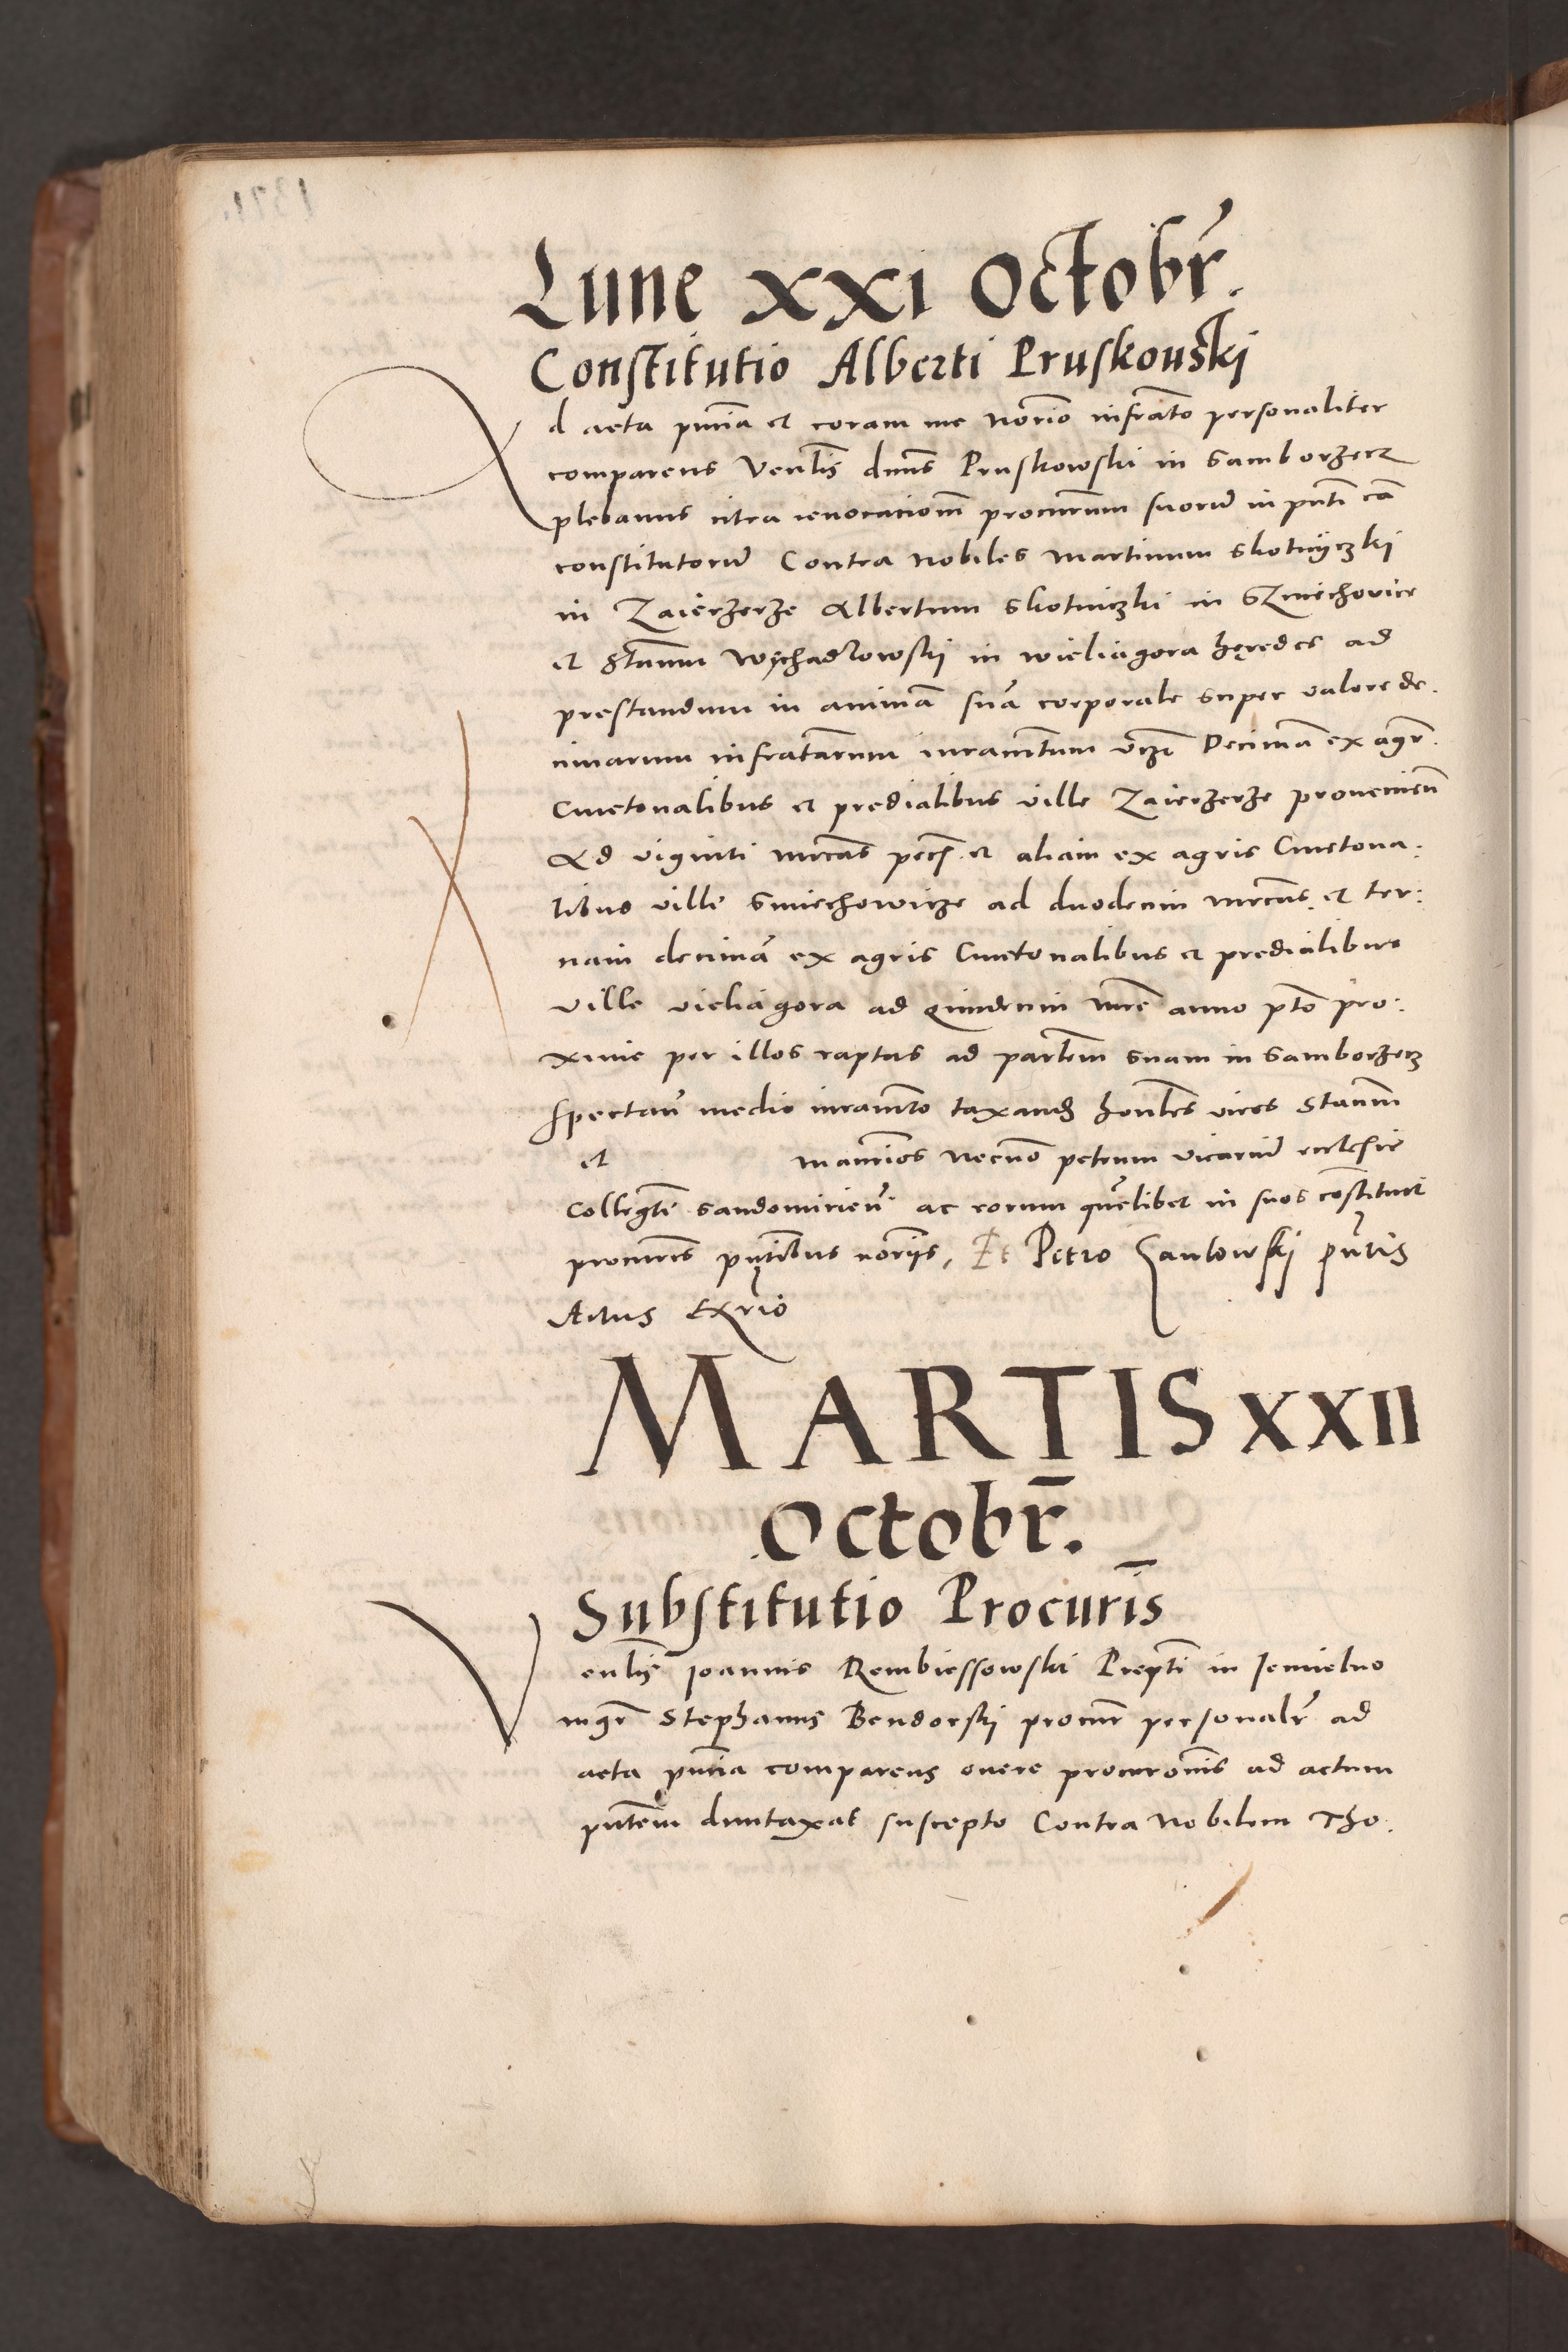 Lune xxi Octobr̃.
Constitutio Alberti Pruskowski
Ad acta pn̄tia et coram me nor̄io infrāto personaliter
comparens Ven̄lis dn̄us Pruskowski in Samborzecz
plebanus citra revocationē procur̄um suorū in pn̄ti cā
constitutorū Contra nobiles Martinum Skotniczki
in Zaierzerze Albertum Skotniczki in Szmiechovice
et Stan̄um Wychadlowski in wieliagora hęredes ad
prestandum in animā suā corporale super valore de.
cimarum infratārum iuram̄tum vƺ Decimā ex agr̄.
Cmetonalibus et predialibus ville Zaierzerze provenieñ
Ad viginti mr̄cas pec̄ et aliam ex agris Cmetona:
libus ville Smiechowicze ad duodecim mr̄cas et ter:
nam decimā ex agris Cmetonalibus et predialibus
ville vieliagora ad quindecim mr̄c anno pn̄to pro:
xime per illos raptas ad partem suam in Samborzecz
spectañ medio iuram̄to taxand̄ hon̄les viros Stan̄um
et mansion̄os necnō petrum vicariū ecclesie
Collegīte Sandomirieñ ac eorum quēlibet in suos cōstituit
procur̄es pn̄tibus nor̄iis, Et Petro pn̄tis
Actus Ex̄rio
MARTIS XXII
Octobr̄.
Substitutio Procurīs
Ven̄lis Joannis Rembiessowski Prep̄ti in Jemielno
mgr̄ Stephanus Bendorski procur̄ personalr̄ ad
acta pn̄tia comparens onere procurōnis ad actum
pn̄tem duntaxat suscepto Contra Nobilem Tho.
1371.